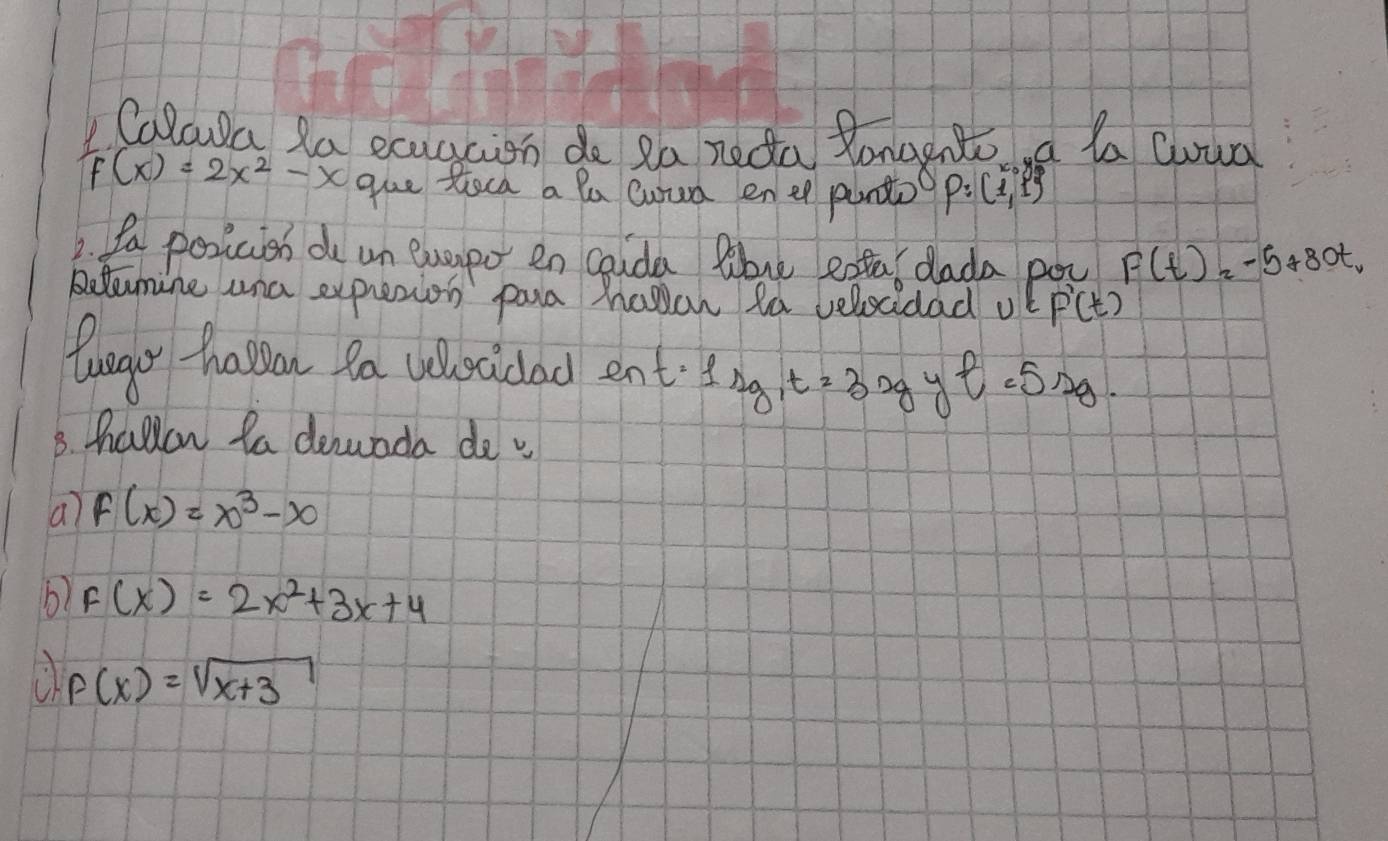 Actividad
1. Calcula la ecuación de la recta tangente a la curva
F(x) = 2x² - x que toca a la curva en el punto P: (1,1)
2. la posición de un cuerpo en caida libre está dada por F(t) = -5+80t.
Determine una expresión para hallar la velocidad v F'(t)
luego hallar la velocidad en t=1sg, t=3sg y t=5sg.
3. hallar la derivada de:
a) F(x) = x³-x
b) F(x) = 2x²+3x+4
c) F(x) = √x+3